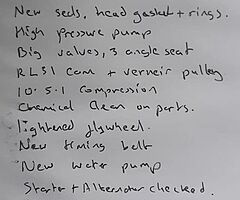 New seals, head gasket + rings.
High pressure pump
Big valves, 3 angle seat
RL31 Cam + vernier pulley
10.5.1 Compression
Chemical Clean on parts.
lightened flywheel.
New timing belt
New water pump
Starter + Alternator checked.